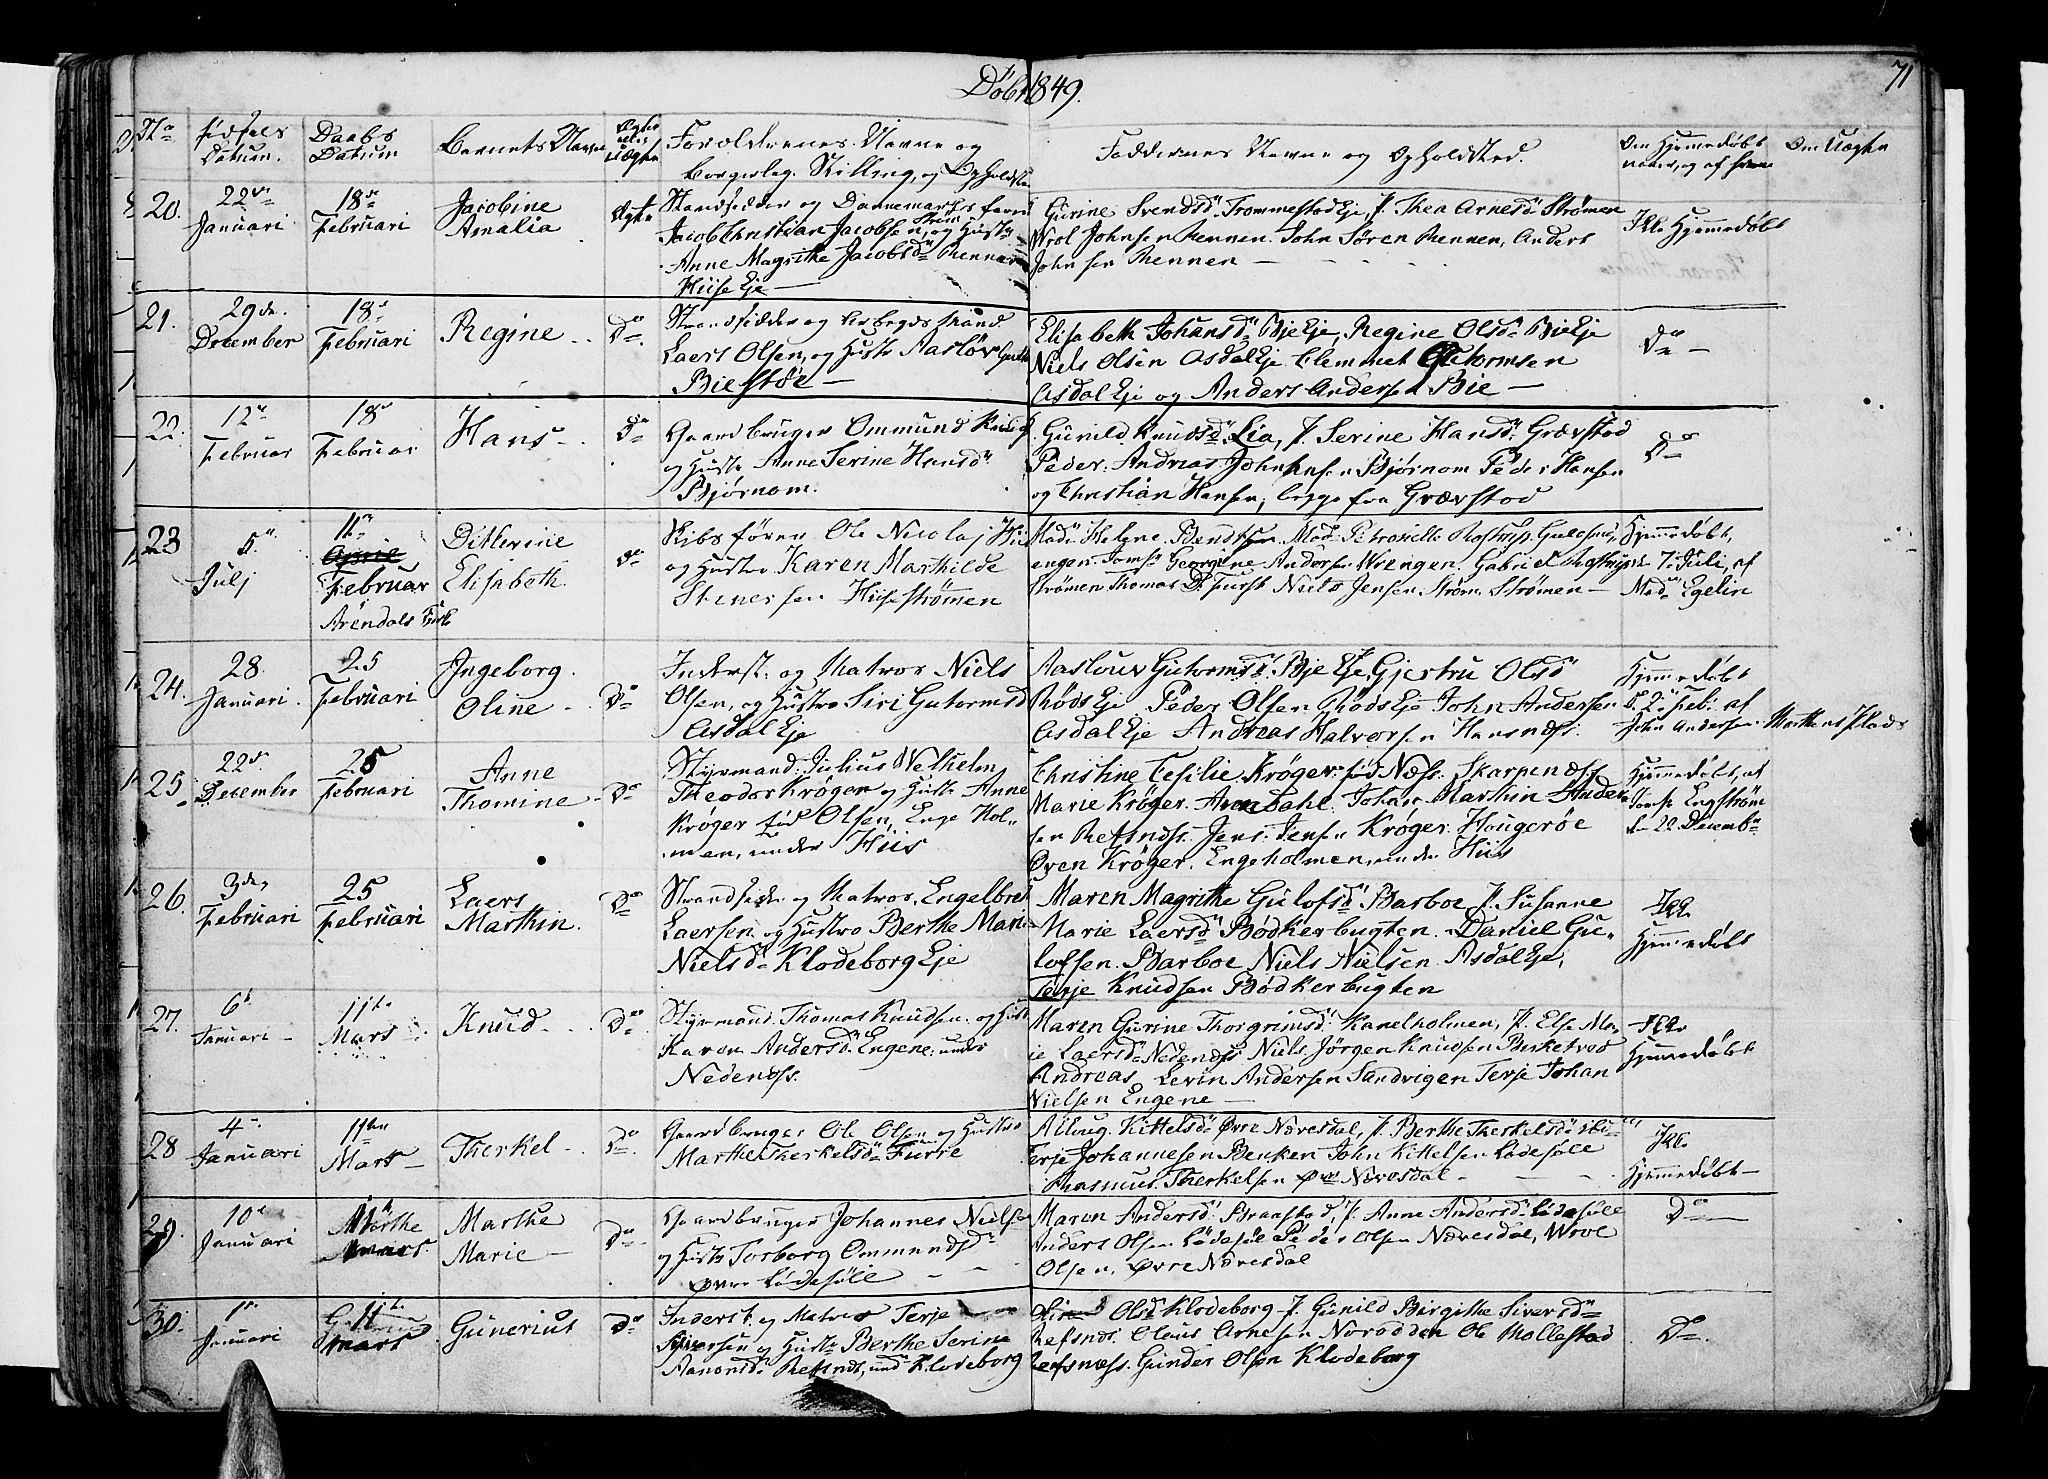 Døbt 1849.
71
No
Fødsels Datum.
Daabs Datum
Barnets Navn
Ægte eller Uægte
Forældrenes Navne og
borgerlig Stilling, og Opholdsted
Faddernes Navne og Opholdsted.
Om Hjemmedøbt
naar, og af hvem
Om Uægte
20.
22de
Januari
18de
Februari
Jacobine
Amalia
Ægte
Strandsidder og Dannemarks
Jacob Christian Jacobsen, og Hustr
Anne Magrithe Jacobsd Rennen
Hiise Eje
Gurine Svendsd Trommestad Eje, J. Thea Arnesd Strømen
Wrol Johnsen Rennen. John Søren Rennen, Anders
Johnsen Rennen
Ikke Hjemmedøbt
21.
29de
December
18de
Februari
Regine
Do
Strandsidder og Arbeydsmand
Laers Olsen, og Hustr Aasløv
Biestøe
Elisabeth Johansd Bje Eje, Regine Olsd Bie Eje
Niels Olsen Asdal Eje Clemmet Gutormsen
Asdal Eje og Anders Andersen Bie
Do
22.
12te
Februar
18de
Februar
Hans
Do
Gaardbruger Ommund
og Hustr Anne Serine Hansd
Bjørnom.
Gunild Knudsd Lia, J. Serine Hansd Grævstad
Peder Andreas Johnsen Bjørnom Peder Hansen
og Christian Hansen, begge fra Grævstad
Do
23
5te
Julj
11te
Februar
Arendals Kirke
Ditlerine
Elisabeth
do
Skibsfører Ole Nicolaj
og Hustro Karen Marthilde
Stenersen Hiisestrømen
Mad Helene Bendtsen Mad Petronille
engen. Jomf Georgine Andersen Wrengen. Gabriel
Strømen Thomas D. Furst Niels Jensen Strøm. Strømen
Hjemmedøbt,
7 Juli, af
Mad Egelin
24.
28.
Januari.
25
Februari
Ingeborg
Oline
Do
Inderst. og Matros Niels
Olsen, og Hustro Siri Gutormsd
Asdal Eje
Aaslouv Gutormsd Bje Eje, Gjertru Olsd
Røds Eje Peder Olsen Røds Eje John Andersen
Asdal Eje Andreas Halvorsen Hansnæs.
Hjemmedøbt
d. 2 Feb. af
John Andersen
25
22de
December
25
Februari
Anne
Thomine
Do
Styrmand Julius Welhelm
Theodor Krøger og Hustr Anne
Krøger fød Olsen, Enge Hol-
men, under Hiis
Christine Cesilie Krøger fød Næss. Skarpenæss
Marie Krøger. Arendahl. Johan Marthin Ander-
sen Refsnæss. Jens Jensen Krøger. Hougerøe
Oven Krøger. Engeholmen, under Hiis
Hjemmedøbt, af
Jomf Engstrøm
den 22 Decemb
26.
3die
Februari
25
Februari
Laers
Marthin.
Do
Strandsidder og Matros, Engelbret
Laersen, og Hustro Berthe Marie
Nielsd Klodeborg Eje
Maren Magrithe Gulofsd Barboe J. Susanne
Marie Laersd Bødkerbugten. Daniel Gu-
lofsen. Barboe Niels Nielsen Asdal Eje,
Terje Knudsen Bødkerbugten
Ikke
Hjemmedøbt
27.
6te
Januari
11te
Mars
Knud
Do
Styrmand Thomas Knudsen og Hustr
Karen Andersd Engene, under
Nedenæss.
Maren Gurine Thorgrimsd Kanelholmen, J. Else Ma-
ie Laersd Nedenæss Niels Jørgen Knudsen Berketved
Andreas Levin Andersen Sandvigen Terje Johan
Nielsen Engene
Ikke
Hjemmedøbt
28
4de
Januari
11te
Mars
Therkel
Do
Gaardbruger Ole Olsen og Hustro
Marthe Therkelsd Furre
Ailoug Kittelsd Øvre Næresdal, J. Berthe Therkelsd
Terje Johannesen Benken John Kittelsen Lødesøle
Rasmus Therkelsen Øvre Næresdal
Ikke
Hjemmedøbt
29.
10de
Januari
11te
Mars
Marthe
Marie
Do
Gaardbruger Johannes Nielsen
og Hustr Torborg Ommundsd
øvre Lødesøle
Maren Andersd Braastad, J. Anne Andersd Lødesøle
Anders Olsen Lødesøle Peder Olsen Næresdal, Wrol
Olsen, Øvre Næresdal
Do
30.
1ste
Januari
11te
Mars
Gunerius
Do
Inderst, og Matros Terje
Siversen og Hustr Berthe Serine
Aanonsd Refsnæs, und Klodeborg
Olsd Klodeborg J. Gunild Birgithe Siversd
Refsnæs. Oleus Arnesen Norodden Ole Mollestad
Refsnæss. Gunder Olsen Klodeborg
Do